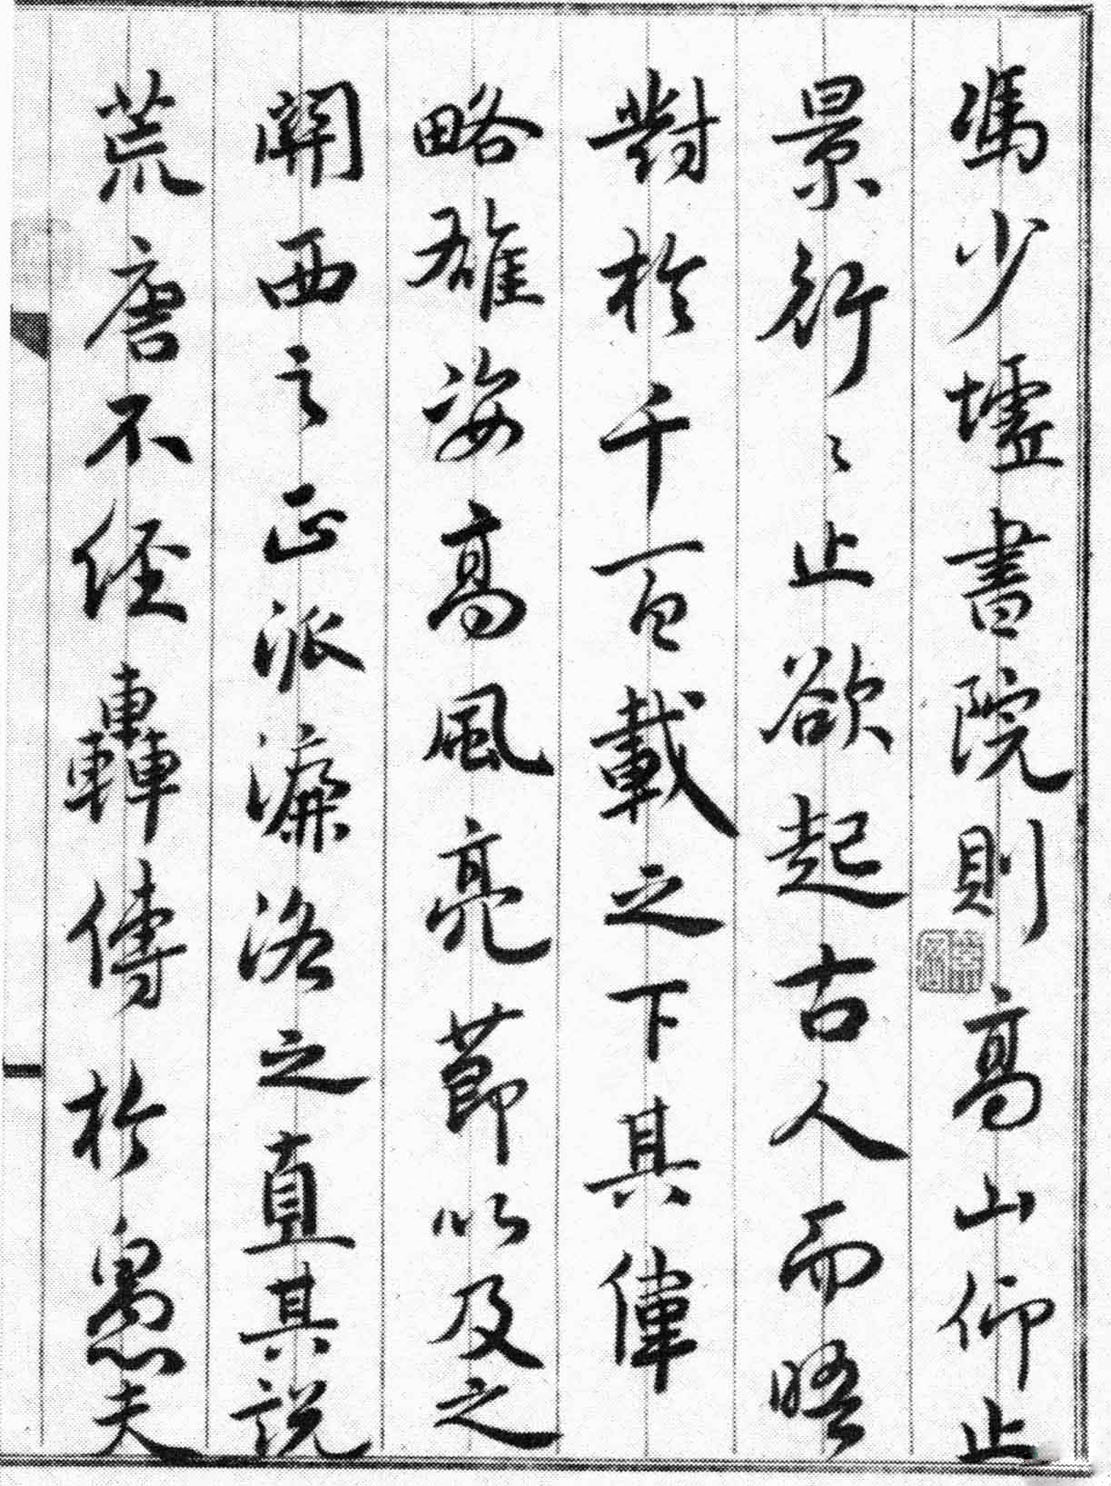 馮少墟書院則高山仰止
景行〻止欲起古人而晤
對於千百載之下其偉
略雄姿高風亮節以及之
關西之正派濂洛之直其說
荒唐不經轟傳於愚夫